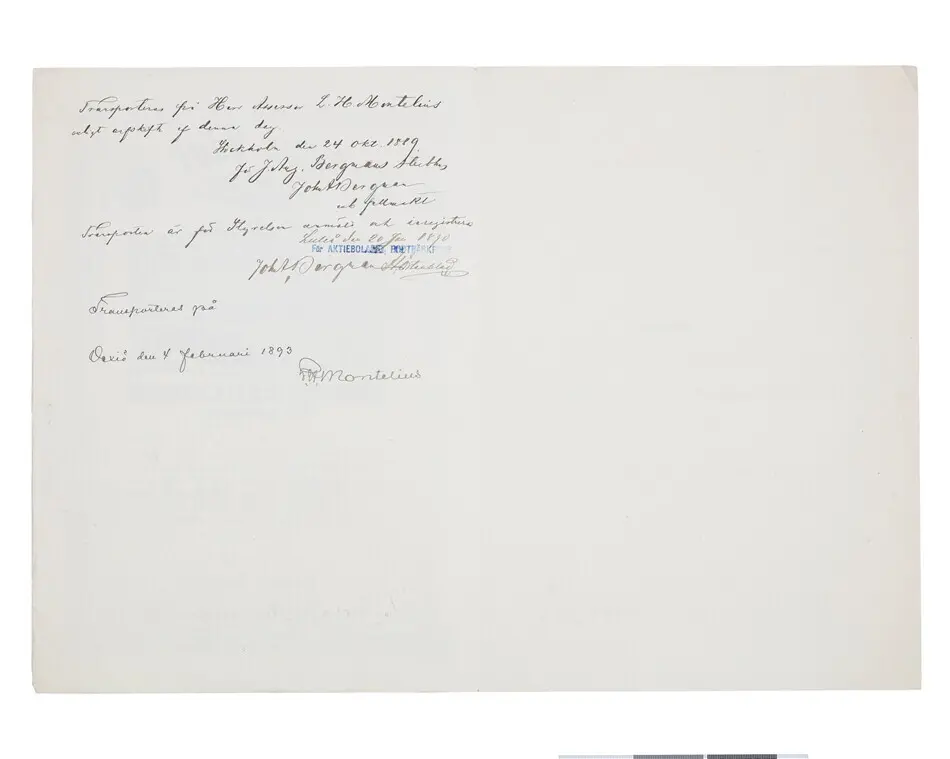 Transporteras på Herr Assessor L. H. Montelius
enligt afskrift af denna dag.
Stockholm den 24 Okt. 1889.
J. Aug. Bergmans Sterbhus
Joh A Bergman
enl fullmakt
Transporten är för Styrelsen anmäld och inregistrera
Luleå den 20 Jan 1890
För AKTIEBOLAGET
Joh A Bergman
Transporteras på
Vexiö den 4 Februari 1893
Montelius